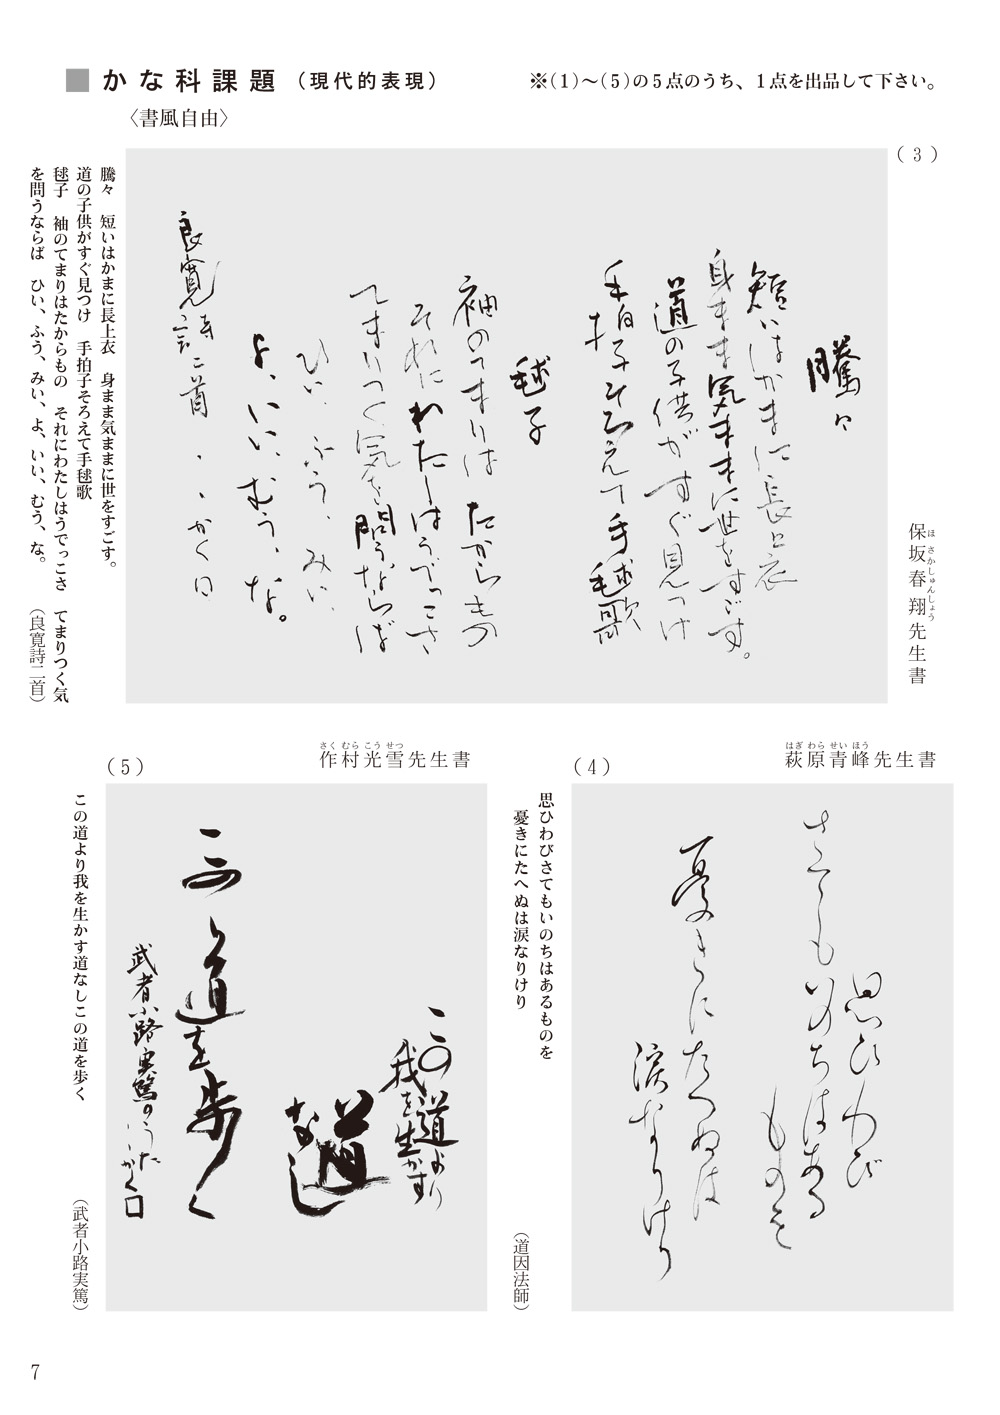 ■かな科課題（現代的表現）
※(1)～(5)の5点のうち、1点を出品して下さい。
〈書風自由〉
(3)
保坂春翔先生書
ほさかしゅんしょう
騰々
短いはかまに長上衣
身まま気ままに世をすごす。
道の子供がすぐ見つけ
手拍子そろえて手毬歌
毬子
袖のてまりはたからもの
それにわたしはうでっこさ
てまりつく気を問うならば
ひい、ふう、みい、
よ、いい、むう、な。
良寛詩二首、、かく日
騰々　短いはかまに長上衣　身まま気ままに世をすごす。
道の子供がすぐ見つけ　手拍子そろえて手毬歌
毬子　袖のてまりはたからもの　それにわたしはうでっこさ　てまりつく気
を問うならば　ひい、ふう、みい、よ、いい、むう、な。
（良寛詩二首）
(4)
萩原青峰先生書
はぎわらせいほう
思ひわび
さてもいのちはある
ものを
憂きにたへぬは
涙なりけり
思ひわびさてもいのちはあるものを
憂きにたへぬは涙なりけり
（道因法師）
(5)
作村光雪先生書
さくむらこうせつ
この道より
我を生かす
道
なし
この道を歩く
武者小路実篤のうた
かく
この道より我を生かす道なしこの道を歩く
（武者小路実篤）
7